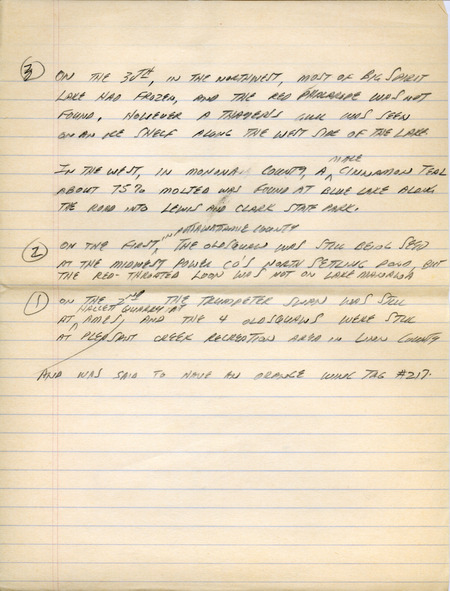 ③ ON THE 30TH, IN THE NORTHWEST, MOST OF BIG SPIRIT
LAKE HAD FROZEN, AND THE RED PHALAROPE WAS NOT
FOUND. HOWEVER A THAYER'S GULL WAS SEEN
ON AN ICE SHELF ALONG THE WEST SIDE OF THE LAKE
MALE
IN THE WEST, IN MONONA COUNTY, A ^ CINNAMON TEAL
ABOUT 75% MOLTED WAS FOUND AT BLUE LAKE ALONG
THE ROAD INTO LEWIS AND CLARK STATE PARK.
IN POTTAWATTAMIE COUNTY
② ON THE FIRST, ^ THE OLDSQUAW WAS STILL BEING SEEN
AT THE MIDWEST POWER CO'S NORTH SETTLING POND, BUT
THE RED-THROATED LOON WAS NOT ON LAKE MANAWA
① ON THE 2ND THE TRUMPETER SWAN WAS STILL
HALLETT QUARRY AT
AT ^ AMES, AND THE 4 OLDSQUAWS WERE STILL
AT PLEASANT CREEK RECREATION AREA IN LINN COUNTY
AND WAS SAID TO HAVE AN ORANGE WING TAG #217.